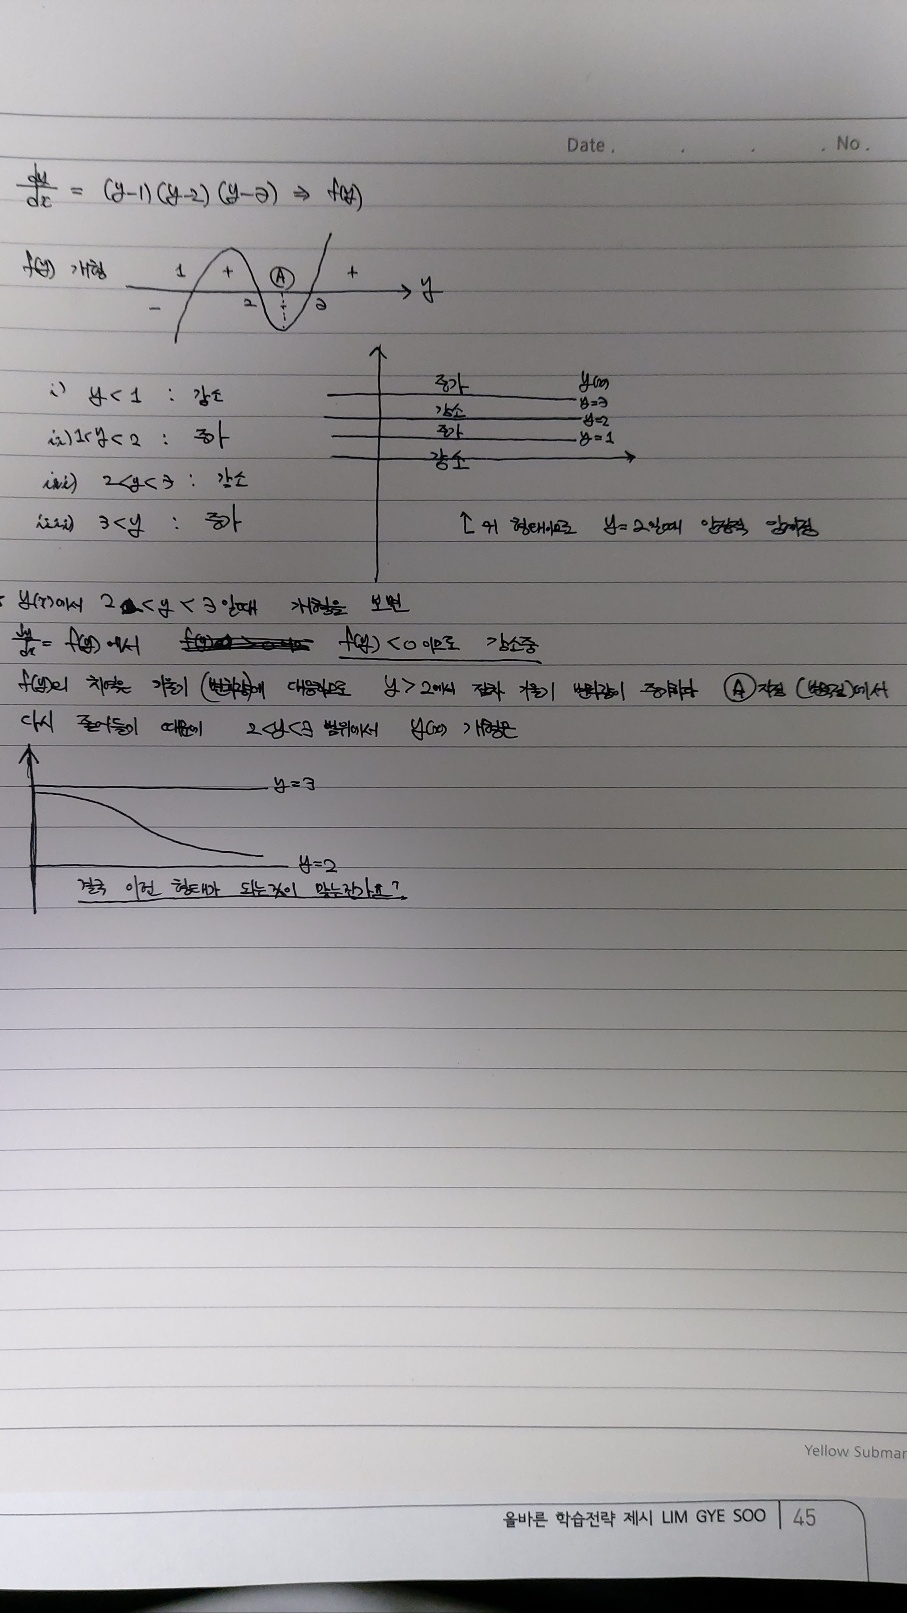 Date . . . . No .
dy/dx = (y-1)(y-2)(y-3) ⇒ f(y)
f(y) 개형 1 + Ⓐ + y
- 2 - 3
i) y<1 : 감소
ii) 1<y<2 : 증가
iii) 2<y<3 : 감소
iiii) 3<y : 증가
증가 y(x)
y=3
감소 y=2
증가 y=1
감소
↑ 위 형태이므로 y=2일때 안정적 평형점
y(x)에서 2<y<3일때 개형을 보면
dy/dx = f(y)에서 f(y)<0 이므로 감소중
f(y)의 치역은 기울기 (변화량)에 대응하므로 y>2에서 점차 기울기 변화량이 증가하다 Ⓐ지점 (변곡점)에서
다시 줄어들기 때문에 2<y<3 범위에서 y(x) 개형은
y=3
y=2
결국 이런 형태가 되는것이 맞는건가요?
Yellow Submar
올바른 학습전략 제시 LIM GYE SOO | 45